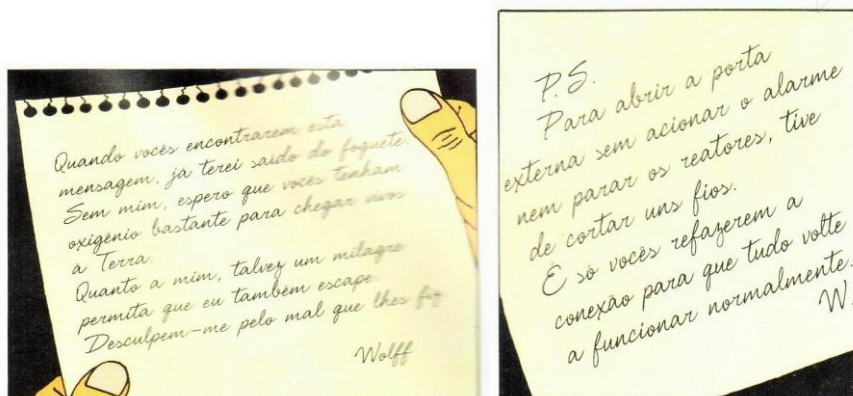 Quando vocês encontrarem esta
mensagem, já terei saído do foguete.
Sem mim, espero que vocês tenham
oxigênio bastante para chegar vivos
à Terra.
Quanto a mim, talvez um milagre
permita que eu também escape.
Desculpem-me pelo mal que lhes fiz
Wolff
P.S.
Para abrir a porta
externa sem acionar o alarme
nem parar os reatores, tive
de cortar uns fios.
É só vocês refazerem a
conexão para que tudo volte
a funcionar normalmente.
W.